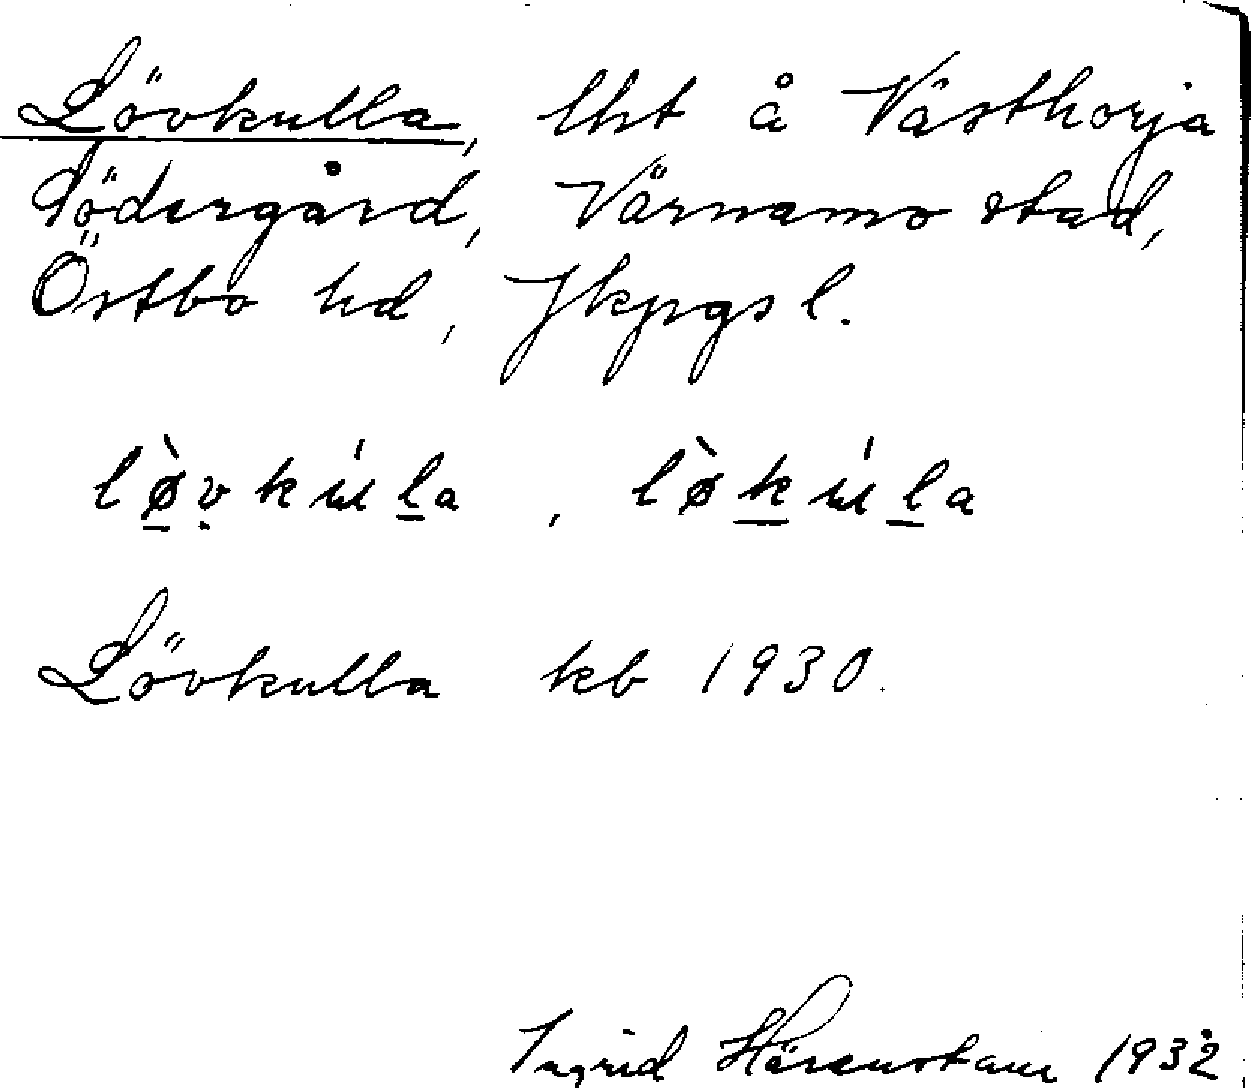 Lövkulla, lht å Västhorja
Södergård, Värnamo stad,
Östbo hd, Jkpgs l.
lø̀vkúla, lø̀kúla
Lövkulla kb 1930.
Ingrid Härenstam 1932